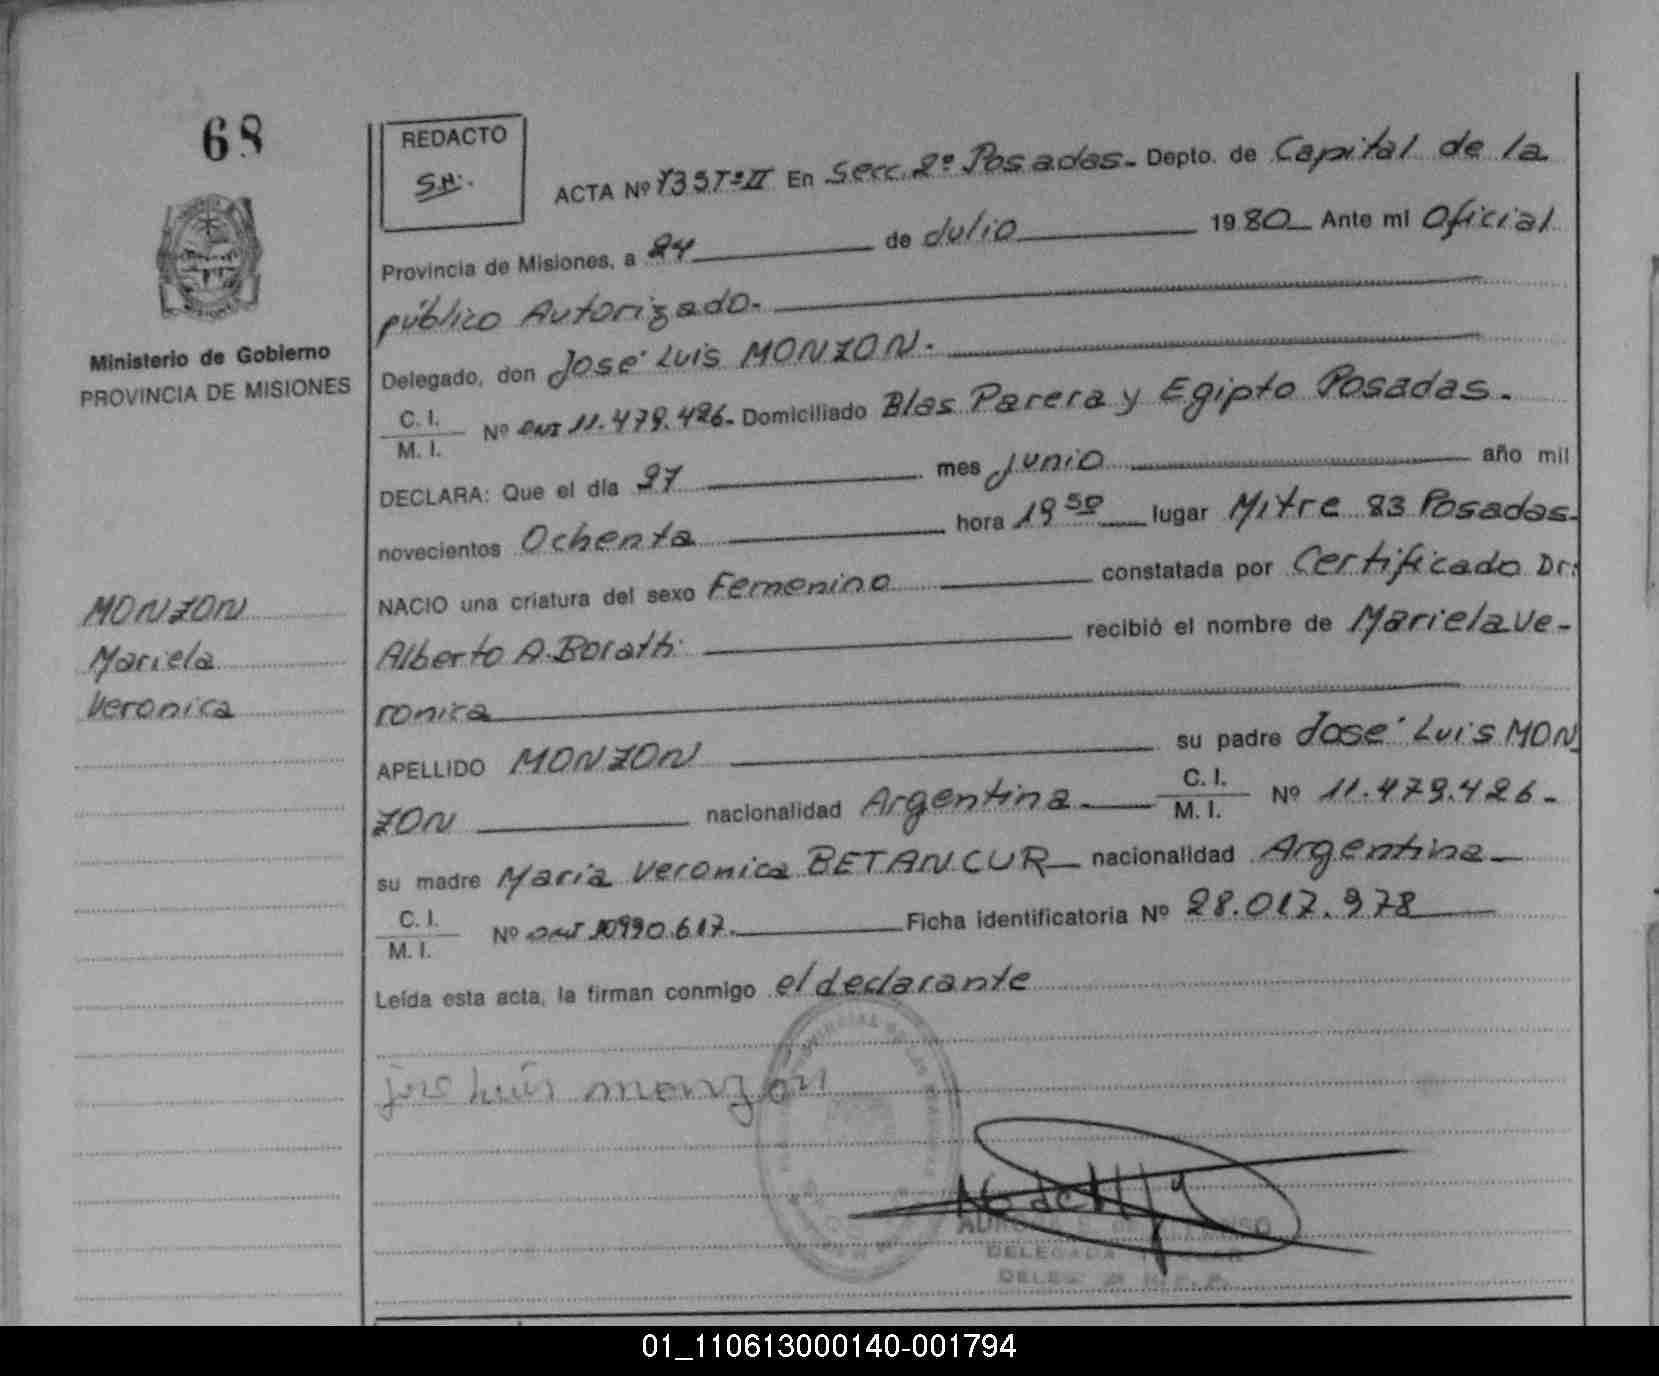 68
REDACTO
S.H.
ACTA Nº 735 Tº II En Secc. 2º Posadas. Depto. de Capital de la
Provincia de Misiones, a 24 de Julio 1980 Ante mi Oficial
público Autorizado.
Ministerio de Gobierno
PROVINCIA DE MISIONES
Delegado, don José Luis MONZON.
C. I.
M. I.
Nº DNI 11.479.426. Domiciliado Blas Parera y Egipto Posadas.
DECLARA: Que el día 27 mes Junio año mil
novecientos Ochenta hora 19 50 lugar Mitre 83 Posadas.
NACIO una criatura del sexo Femenino constatada por Certificado Dr:
MONZON
Mariela
Veronica
Alberto A. recibió el nombre de Mariela Ve-
ronica
APELLIDO MONZON su padre José Luis MON
ZON nacionalidad Argentina. C. I.
M. I. Nº 11.479.426.
su madre Maria Veronica BETANCUR nacionalidad Argentina
C. I.
M. I.
Nº DNI 10990.617. Ficha identificatoria Nº 28.017.978
Leída esta acta, la firman conmigo el declarante
jose luis monzon
DELEGADA
01_110613000140-001794